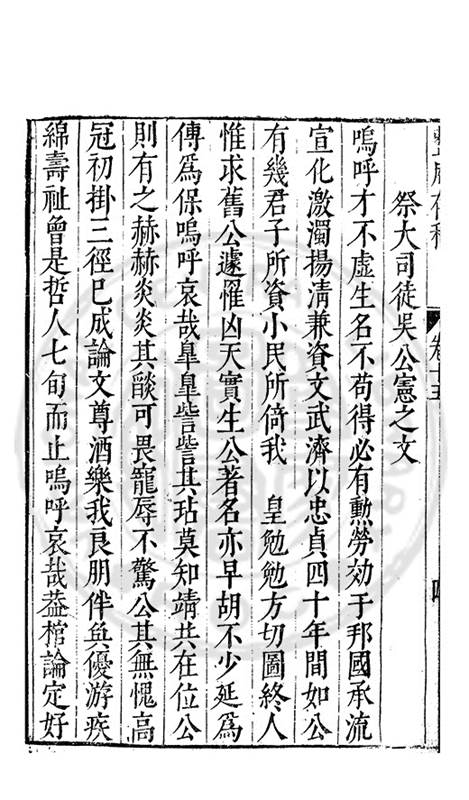 祭大司徒吳公憲之文
嗚呼才不虛生名不苟得必有勲勞効于邦國承流
宣化激濁揚清兼資文武濟以忠貞四十年間如公
有幾君子所資小民所倚我　皇勉勉方切圖終人
惟求舊公遽罹凶天實生公著名亦早胡不少延爲
傳爲保嗚呼哀哉臯臯訾訾其玷莫知靖共在位公
則有之赫赫炎炎其燄可畏寵辱不驚公其無愧高
冠初掛三徑已成論文尊酒樂我良朋伴奐優游疾
綿壽祉曾是哲人七旬而止嗚呼哀哉葢棺論定好